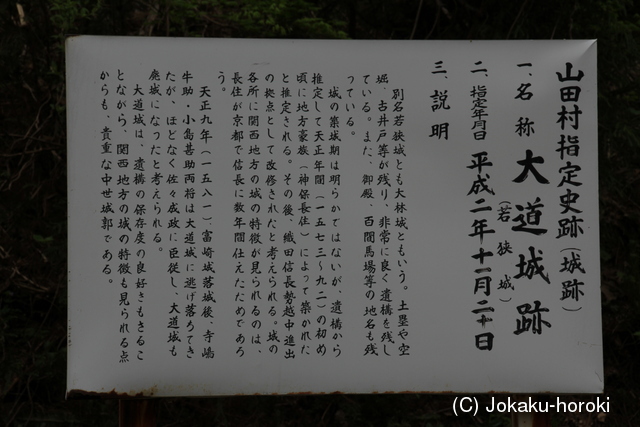 山田村指定史跡（城跡）
一、名称 大道城跡
（若狭城）
二、指定年月日 平成二年十一月二十日
三、説明
別名若狭城とも大林城ともいう。土塁や空
堀、古井戸等が残り、非常に良く遺構を残し
ている。また、御殿、百間馬場等の地名も残
っている。
城の築城期は明らかではないが、遺構から
推定して天正年間（一五七三～九二）の初め
頃に地方豪族（神保長住）によって築かれた
と推定される。その後、織田信長勢越中進出
の拠点として改修されたと考えられる。城の
各所に関西地方の城の特徴が見られるのは、
長住が京都で信長に数年間仕えたためであろ
う。
天正九年（一五八一）富崎城落城後、寺嶋
牛助・小島甚助両将は大道城に逃げ落ちてき
たが、ほどなく佐々成政に臣従し、大道城も
廃城になったと考えられる。
大道城は、遺構の保存度の良好さもさるこ
とながら、関西地方の城の特徴も見られる点
からも、貴重な中世城郭である。
(C) Jokaku-horoki